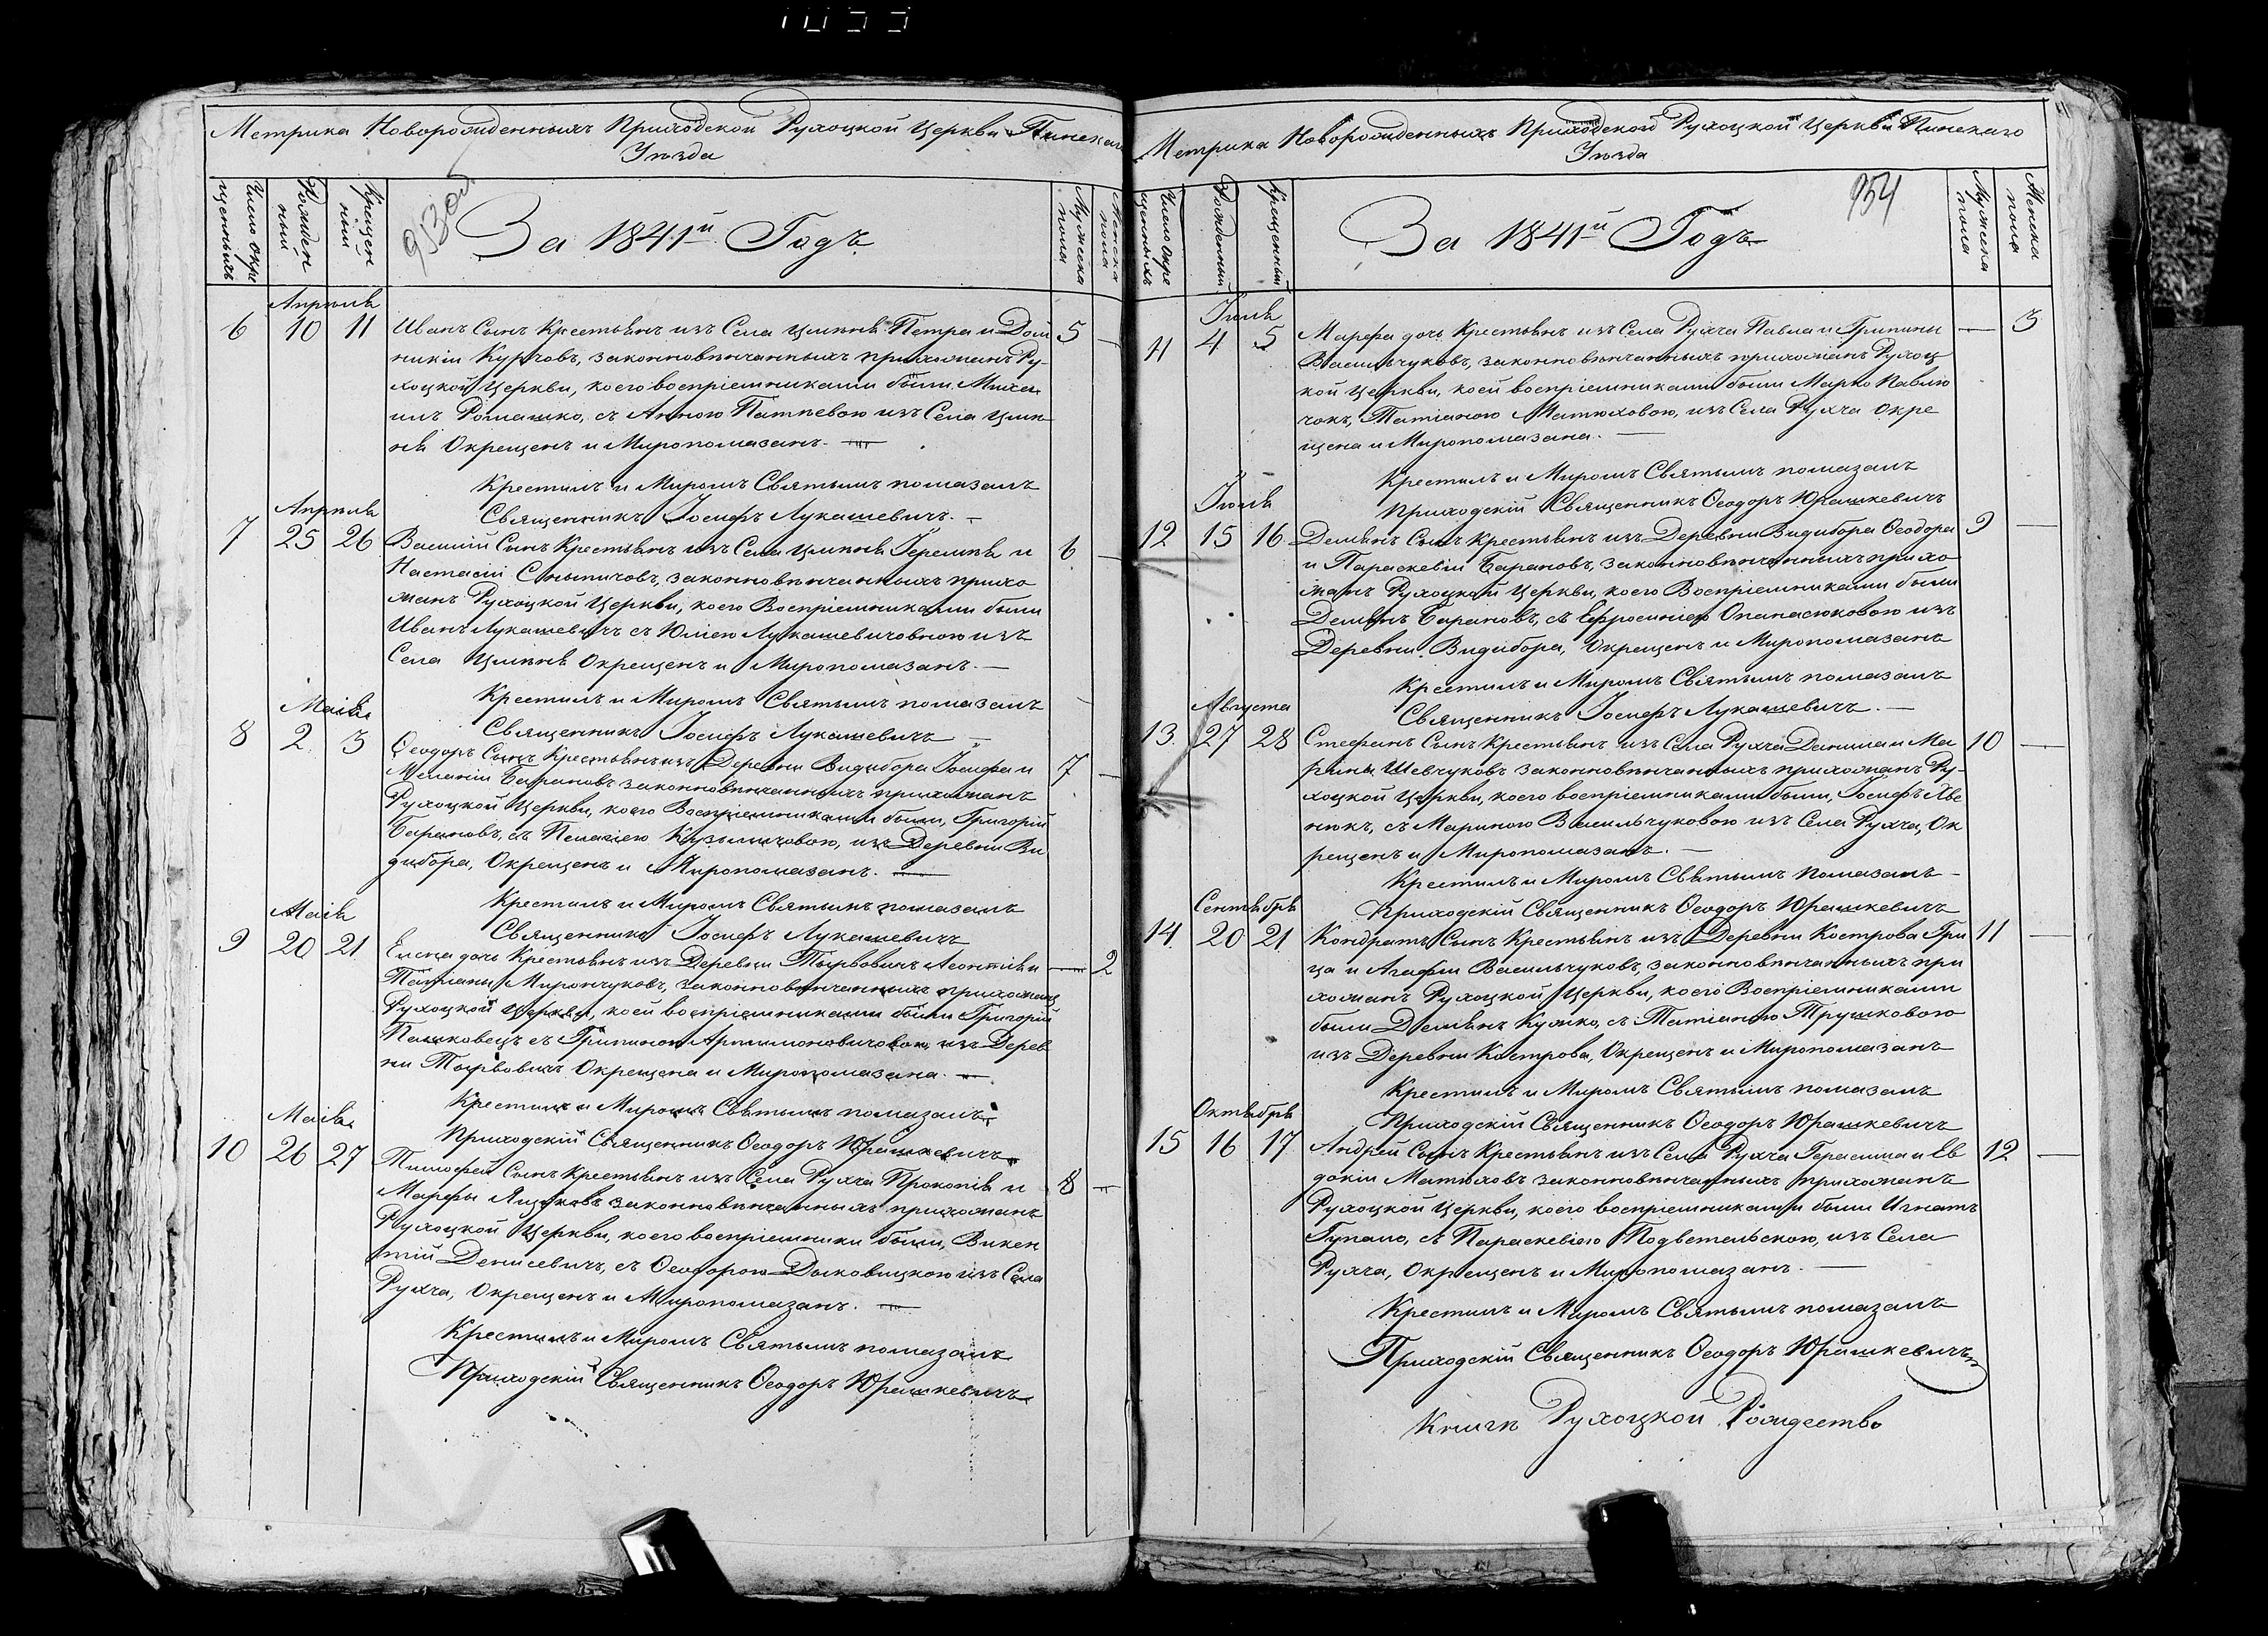 Метрика Новорожденныхъ Приходской Рухоцкой Церкви Пинскаго
Уѣзда
Число окре
щенныхъ
Рожден
ный
Крещен
ный
За 1841й Годъ
Мужеска
пола
Женска
пола
Апрѣля
6 10 11 Иванъ Сынъ Крестьянъ изъ Села Цмѣня Петра и Дом 5 —
никіи Курчовъ, законновѣнчанныхъ прихожанъ Ру-
хоцкой Церкви, коего воспріемниками были Михаи
илъ Ромашко, съ Анною Патпевою изъ Села Цмѣ
ня Окрещенъ и Миропомазанъ. —
Крестилъ и Миромъ Святымъ помазалъ
Священникъ Іосифъ Лукашевичъ. —
Апрѣля
7 25 26 Василій Сынъ Крестьянъ изъ Села Цмѣня Іереміи и 6 —
Настасіи Сныпичовъ, законновѣнчанныхъ прихо
жанъ Рухоцкой Церкви, коего Воспріемниками были
Иванъ Лукашевичъ съ Юліею Лукашевичовною изъ
Села Цмѣня Окрещенъ и Миропомазанъ. —
Крестилъ и Миромъ Святымъ помазалъ
Священникъ Іосифъ Лукашевичъ —
Маія
8 2 3 Ѳеодоръ Сынъ Крестьянъ изъ Деревни Видибора Іосифа и 7 —
Меланіи Барановъ законновѣнчанныхъ прихожанъ
Рухоцкой Церкви, коего Воспріемниками были, Григорій
Барановъ, съ Пелагіею Кузьмичовою, изъ Деревни Ви
дибора, Окрещенъ и Миропомазанъ. —
Крестилъ и Миромъ Святымъ помазалъ
Священникъ Іосифъ Лукашевичъ
Маія
9 20 21 Елена дочь Крестьянъ изъ Деревни Тырвовичъ Леонтія и — 2
Татіаны Мирончуковъ, законновѣнчанныхъ прихожанъ
Рухоцкой Церкви, коей воспріемниками были Григорій
Пашковецъ съ Грипиною Аримоновичовою, изъ Дерев
ни Тырвовичъ Окрещена и Миропомазана. —
Крестилъ и Миромъ Святымъ помазалъ
Приходскій Священникъ Ѳеодоръ Юрашкевичъ
Маія
10 26 27 Тимофей Сынъ Крестьянъ изъ Села Рухча Прокопія и 8 —
Марфы Яцуковъ законновѣнчанныхъ прихожанъ
Рухоцкой Церкви, коего воспріемники были, Викен
тій Денисевичъ, съ Ѳеодорою Дыковицкою изъ Села
Рухча, Окрещенъ и Миропомазанъ. —
Крестилъ и Миромъ Святымъ помазалъ
Приходскій Священникъ Ѳеодоръ Юрашкевичъ
Метрика Новорожденныхъ Приходской Рухоцкой Церкви Пинскаго
Уѣзда
Число окре
щенныхъ
Рожденный
Крещенный
За 1841й Годъ
954
Мужеска
пола
Женска
пола
Іюля
11 4 5 Марфа дочь Крестьянъ изъ Села Рухча Павла и Грипины — 3
Васильчуковъ, законновѣнчанныхъ прихожанъ Рухоц
кой Церкви, коей воспріемниками были Марко Павлю
чокъ, Татіаною Матюховою, изъ Села Рухча Окре
щена и Миропомазана. —
Крестилъ и Миромъ Святымъ помазалъ
Приходскій Священникъ Ѳеодоръ Юрашкевичъ
Іюля
12 15 16 Демьянъ Сынъ Крестьянъ изъ Деревни Видибора Ѳеодора 9 —
и Параскевіи Барановъ, законновѣнчанныхъ прихо
жанъ Рухоцкой Церкви, коего Воспріемниками были
Демьянъ Барановъ, съ Ефросиніею Опанасюковою изъ
Деревни Видибора, Окрещенъ и Миропомазанъ
Крестилъ и Миромъ Святымъ помазалъ
Священникъ Іосифъ Лукашевичъ. —
Августа
13. 27 28 Стефанъ Сынъ Крестьянъ изъ Села Рухча Данила и Ма 10 —
рины Шевчуковъ законновѣнчанныхъ прихожанъ Ру-
хоцкой Церкви, коего воспріемниками были, Іосифъ Хве
нюкъ, съ Мариною Васильчуковою изъ Села Рухча, Ок
рещенъ и Миропомазанъ. —
Крестилъ и Миромъ Святымъ помазалъ
Приходскій Священникъ Ѳеодоръ Юрашкевичъ
Сентября
14. 20 21 Кондратъ Сынъ Крестьянъ изъ Деревни Кострова Гри 11 —
ца и Агафіи Васильчуковъ, законновѣнчанныхъ при
хожанъ Рухоцкой Церкви, коего Воспріемниками
были Демьянъ Кужко, съ Татіаною Трушковою
изъ Деревни Кострова, Окрещенъ и Миропомазанъ
Крестилъ и Миромъ Святымъ помазалъ
Приходскій Священникъ Ѳеодоръ Юрашкевичъ
Октября
15 16 17 Андрей Сынъ Крестьянъ изъ Села Рухча Герасима и Ев 12 —
докіи Матюховъ законновѣнчанныхъ прихожанъ
Рухоцкой Церкви, коего воспріемниками были Игнатъ
Гупало, съ Параскевіею Подветельскою, изъ Села
Рухча, Окрещенъ и Миропомазанъ. —
Крестилъ и Миромъ Святымъ помазалъ
Приходскій Священникъ Ѳеодоръ Юрашкевичъ
Книгѣ Рухоцкой Рождество